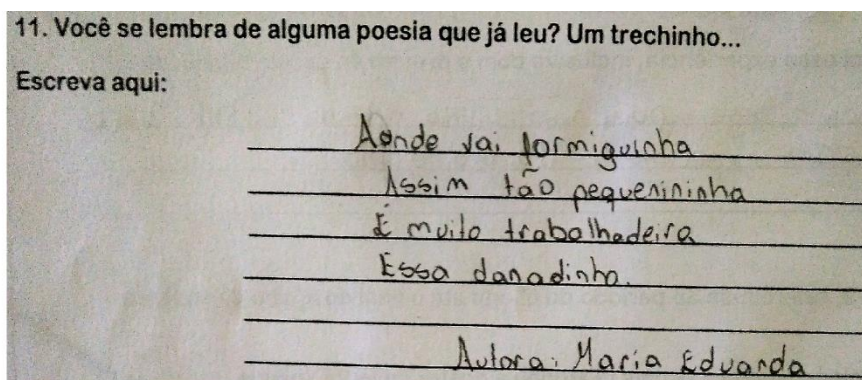 11. Você se lembra de alguma poesia que já leu? Um trechinho...
Escreva aqui:
Aonde vai formiguinha
Assim tão pequenininha
É muito trabalhadeira
Essa danadinha.
Autora: Maria Eduarda